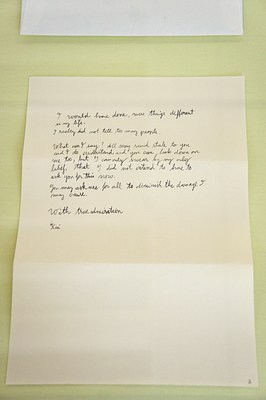 I would have done, were things different
in my life.
I really did not tell to many people
What can I say? All may sound stale to you
and I do understand and you can look down on
me to, but I can only swear by my only
belief, that I did not intend to have to
ask you for this now.
You may ask me for all to diminish the damage I
may cause.
With true admiration
Kai